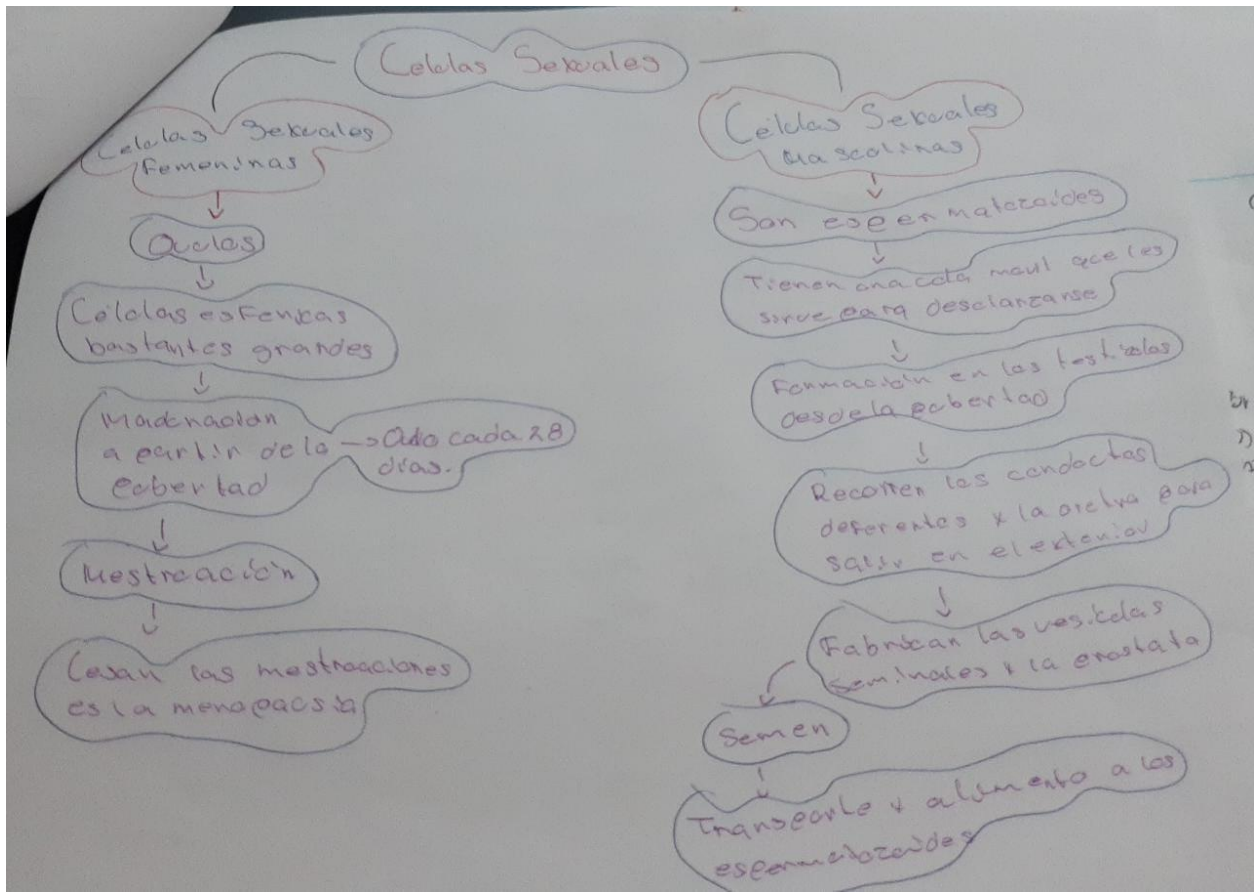 Celulas Sexuales
Celulas Sexuales
Femeninas
Ovulos
Células esfericas
bastantes grandes
Maduracion
a partir de la
pubertad
→ Ovulo cada 28
días.
Mestruación
Cesan las mestruaciones
es la menopausia
Células Sexuales
Masculinas
Son espermatozoides
Tienen una cola movil que les
sirve para desplanzarse
Formación en los testiculos
desde la pubertad
Recorren los conductos
deferentes y la uretra para
salir en el exterior
Fabrican las vesiculas
seminales y la prostata
Semen
Transporte y alimento a los
espermatozoides